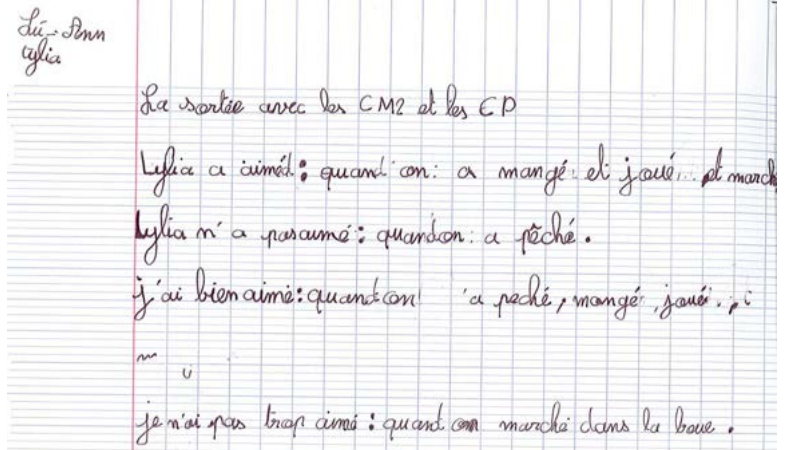 Lú-Ann
Lylia
La sortie avec les CM2 et les CP
Lylia a aimé : quand on : a mangé et joué, et march
Lylia n'a pas aimé : quand on : a pêché.
j'ai bien aimé : quand on a peché, mangé, joué.
je n'ai pas trop aimé : quand on marché dans la boue.